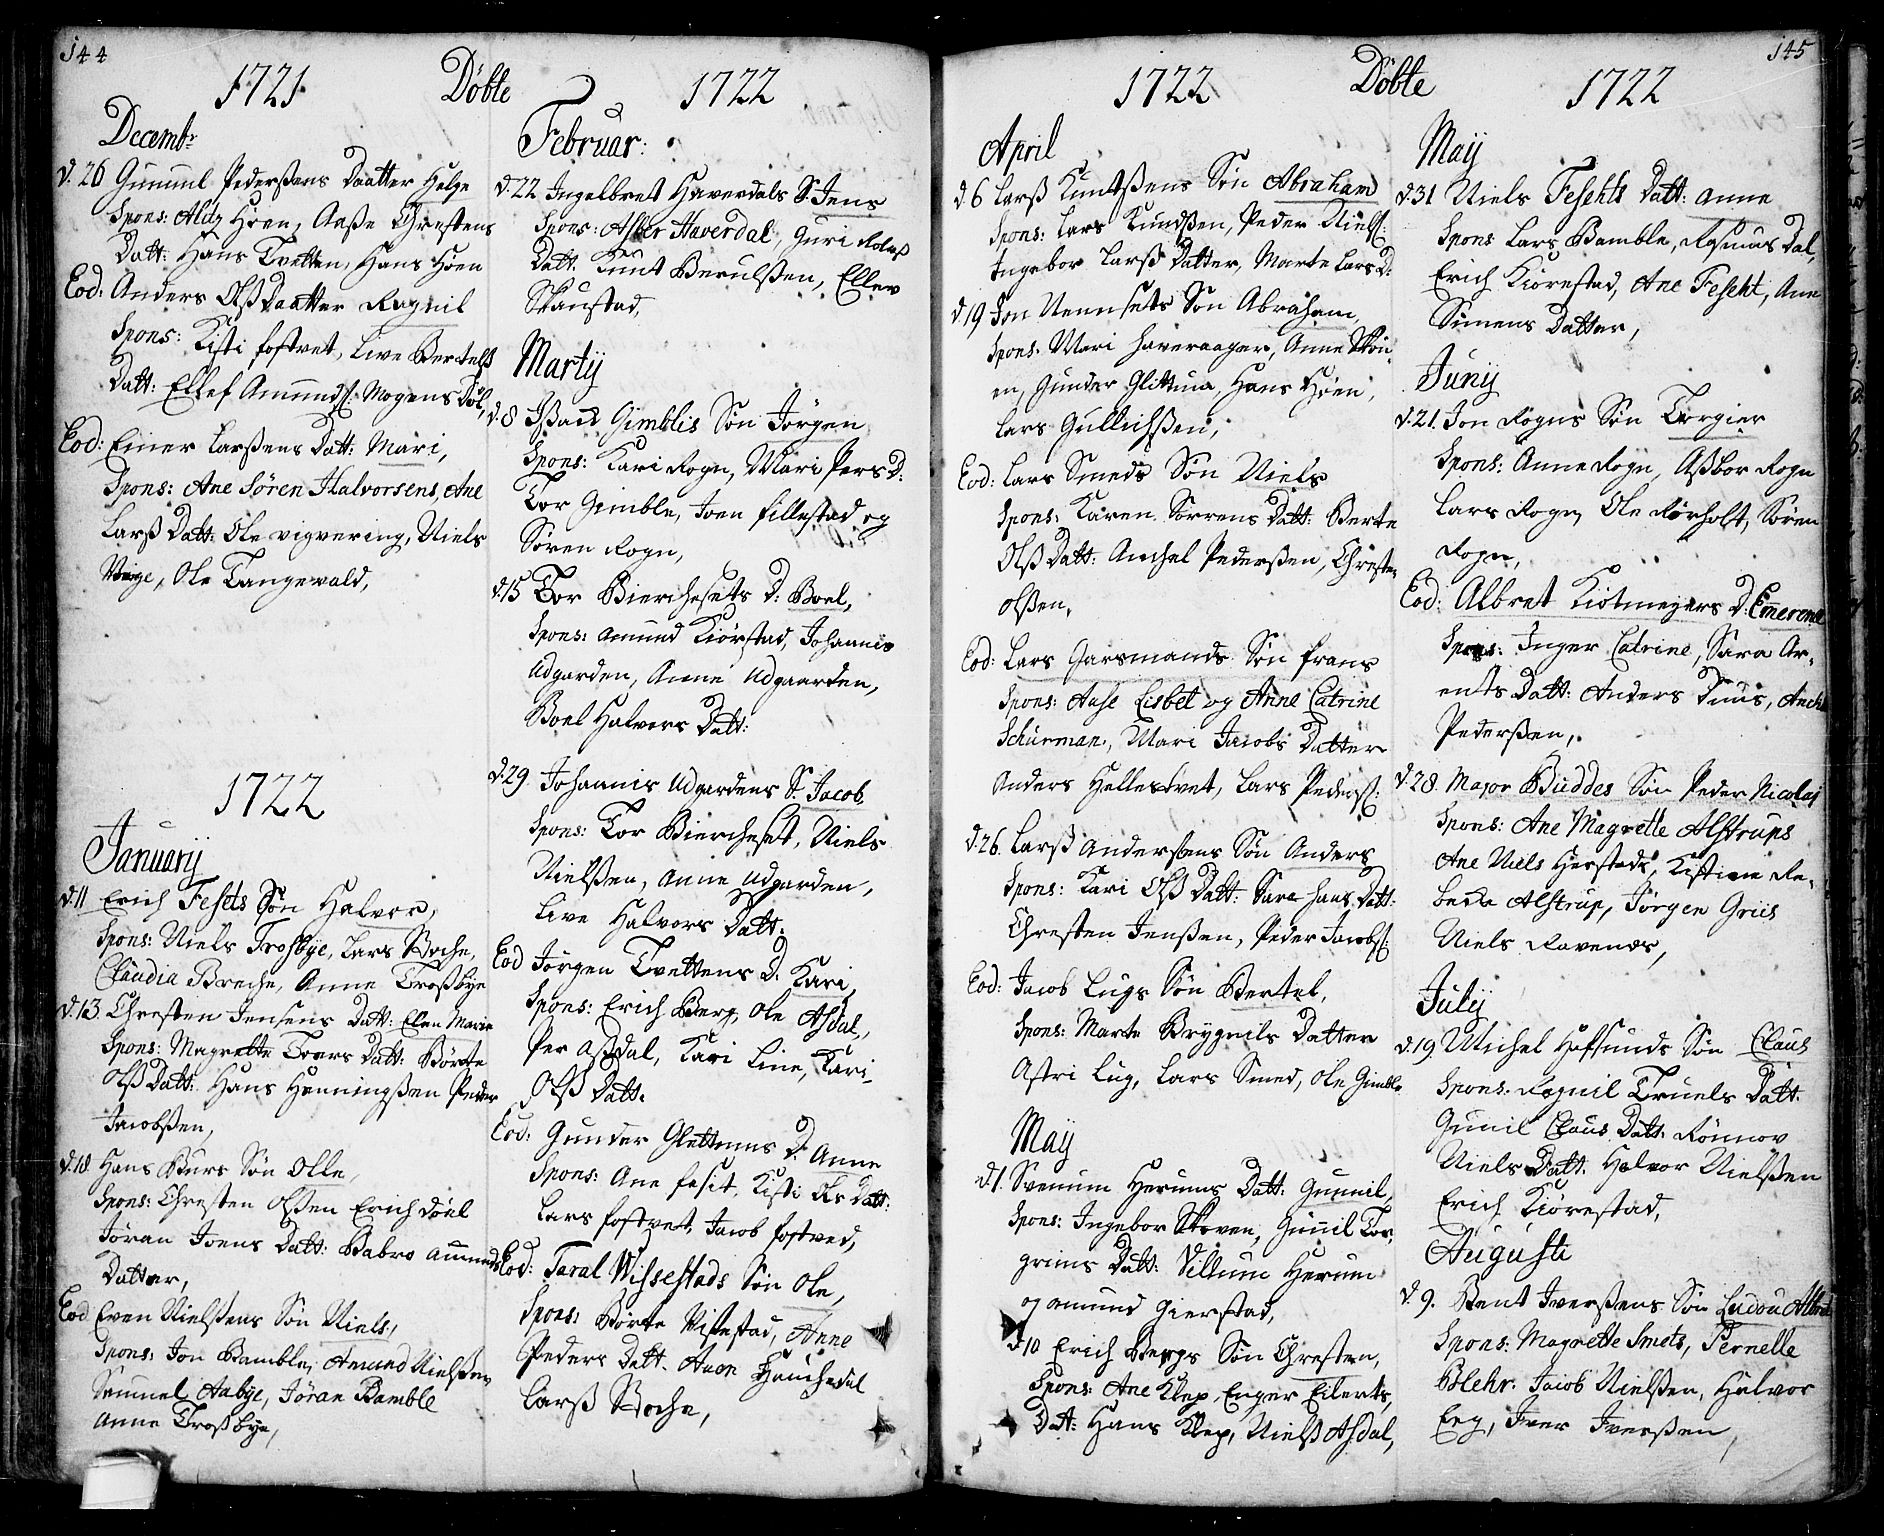 144
1721. Döbte 1722
Decembr
d. 26 Gunnul Pederßens Daatter Helge
Spons: Alitz Hoen, Aaße Chrestens
Datt: Hans Tvetten, Hans Hoen
Eod: Anders Olß Daatter Ragnil
Spons: Kisti fostvet, Live Bertelß
Datt: Ellef Amunds: Mogens Döl,
Eod: Einer Larßens Datt: Mari,
Spons: Ane Sören Halvorsens, Ane
Larß Datt: Ole vigvering, Niels
Vige, Ole Tangevald,
1722
Januarij
d. 11 Erich Fesets Sön Halvor,
Spons: Niels Trosbye, Lars Boche,
Claudia Breche, Anne Troßbye
d. 13. Chresten Jensens Datt: Elen Marie
Spons: Magrette Tvers Datt: Börte
Olß Datt. Hans Henningßen Peder
Jacobßen,
d. 18 Hans Burs Sön Olle,
Spons: Chresten Olßen Erich döel
Jöran Joens Datt: Babro Amunds
Datter,
Eod Even Nielßens Sön Niels,
Spons: Jon Bamble, Amund Nielßen
Semuel Aabye, Jöran Bamble
Anne Troßbye,
Februar:
d. 22 Ingelbret Haverdals S. Jens
Spons: Asber Haverdal, Guri Rolß
Datt. Knut Berulßen, Ellev
Skaustad,
Martij
d. 8 Ißack Gimblis Sön Jörgen
Spons: Kari Rogn, Mari Pers D:
Tor Gimble, Joen fillestad og
Sören Rogn,
d. 15 Tor Bierchesets D: Boel,
Spons: Amund Kiörstad, Johannis
Udgarden, Anne Udgaarden,
Boel Halvors Datt:
d. 29. Johannis Udgardens S. Jacob
Spons: Tor Biercheset, Niels
Nielßen, Anne Udgarden,
Live Halvors Datt:
Eod Jörgen Tvettens D. Kari,
Spons: Erich Berg, Ole Asdal,
Per Aßdal, Kari Line, Kari
Olß Datt.
Eod: Gunder Glettenns D. Anne
Spons: Ane fesit, Kisti Ols Datt:
Lars fostvet, Jacob fostved,
Eod: Taral Wissestads Sön Ole,
Spons: Börte Visestad, Anne
Peders Datt. Aaen Hauchedal
Larß Boche,
145
1722 Döbte 1722
April
d. 6 Larß Knutßens Sön Abraham
Spons: Lars Kundßen, Peder Niels:
Ingebor Larß Datter, Marte Lars D:
d. 19 Jon Nennsets Sön Abraham,
Spons. Mari haveraager, Anne Skou
en, Gunder Glittum, Hans Hoen,
Lars Gullichßen,
Eod: Lars Smeds Sön Niels
Spons: Karen Sörrens Datt: Berte
Olß Datt: Amchel Pederßen, Chresten
Olßen,
Eod: Lars Garsmands Sön frans
Spons: Aase Lisbet og Anne Catrine
Schürman, Mari Jacobs Datter
Anders Hellestvet, Lars Peders:
d. 26. Larß Andersens Sön Anders
Spons: Kari Olß Datt: Sara hans Datt:
Chresten Jenßen, Peder Jacobs:
Eod: Jacob Lugs Sön Bertel,
Spons: Marte Brygnils Datter
Astri Lug, Lars Smed, Ole Gimble
May
d. 1. Svenum Herums Datt: Gunnil,
Spons: Ingebor Skoven, Gunil Tor
grims Datt: Villum Herum
og Amund Gierstad,
d. 10 Erich Bergs Sön Chresten,
Spons: Ane Klep, Enger Eilerts,
Dat: Hans Klep, Nielß Asdal,
Maij
d. 31 Niels Feschts Datt: Anne
Spons Lars Bamble, Rasmus Dal,
Erich Kiörestad, Ane Fescht, Ane
Simens Datter,
Junij
d. 21. Jon Rogns Sön Torgier
Spons: Anne Rogn, Aßbor Rogn
Lars Rogn, Ole Rörholt, Sören
Rogn,
Eod: Albret Kiötmeyers D: Emerence
Spons: Inger Catrine, Sara Ar-
ents Datt: Anders Duus, Anchel
Pederßen,
d. 28. Major Buddes Sön Peder Nicolaj
Spons: Ane Magrette Alstrups
Ane Niels Herstads, Kistine Re-
becka Alstrup, Jörgen Griis
Niels Ravenas,
Julij
d. 19. Michel Hafsunds Sön Claus
Spons: Ragnil Truels Datt.
Gunil Claus Datt: Rönnov
Niels Datt. Halvor Nielßen
Erich Kiörestad,
Augusti
d. 9. Bent Iverßens Sön Ludou Albret
Spons: Magrette Smets, Pernelle
Blehr. Jacob Nielßen, Halvor
Eeg, Iver Iverßen,